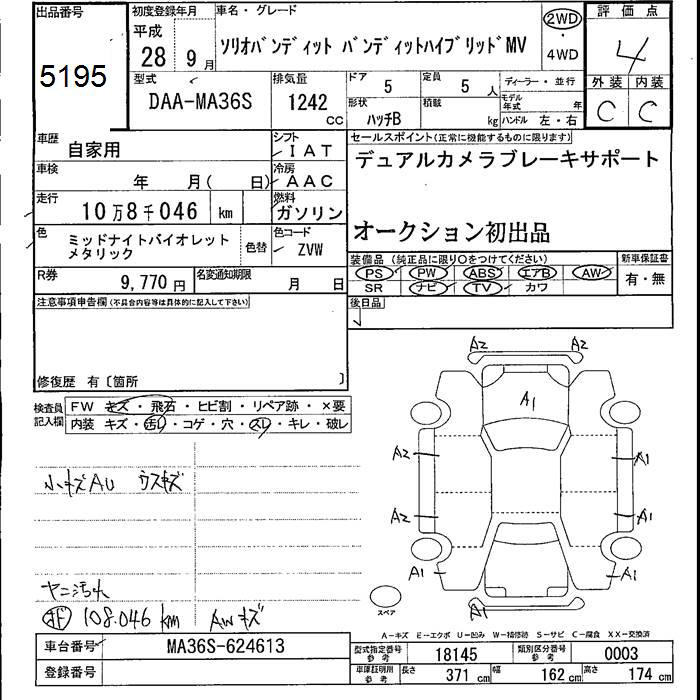 出品番号 初度登録年月 車名・グレード 2WD 評価点
平成
28年 9月 ソリオバンディット バンディットハイブリッドMV ・ 4
4WD
5195 型式 排気量 ドア 定員 ディーラー・並行 外装 内装
DAA-MA36S 1242 cc 5 5人 モデル年式 年 C C
形状 ハッチB 積載 kg ハンドル 左・右
車歴 自家用 シフト IAT セールスポイント(正常に機能するものに限ります)
車検 年 月( 日) 冷房 AAC デュアルカメラブレーキサポート
走行 10万8千046 km 燃料 ガソリン
色 ミッドナイトバイオレット 色替 色コード オークション初出品
メタリック ZVW
R券 9,770円 名変通知期限 月 日 装備品(純正品に限り○をつけてください) 新車保証書
PS PW ABS エアB AW 有・無
SR ナビ TV カワ
注意事項申告欄(不具合内容等は具体的に記入して下さい) 後日品
修復歴 有〔箇所 〕
検査員 FW キズ・飛石・ヒビ割・リペア跡・×要
記入欄 内装 キズ・汚レ・コゲ・穴・スレ・キレ・破レ
A2 A2
A1
A2 A1
A2 A1
A1 A1
A1
小キズAU ウスキズ
ヤニ汚れ
108.046 km AWキズ
スペア
A-キズ E-エクボ U-凹み W-補修跡 S-サビ C-腐食 XX-交換済
車台番号 MA36S-624613 型式指定番号 参考 18145 類別区分番号 参考 0003
登録番号 車庫証明用 参考 長さ 371cm 幅 162cm 高さ 174cm